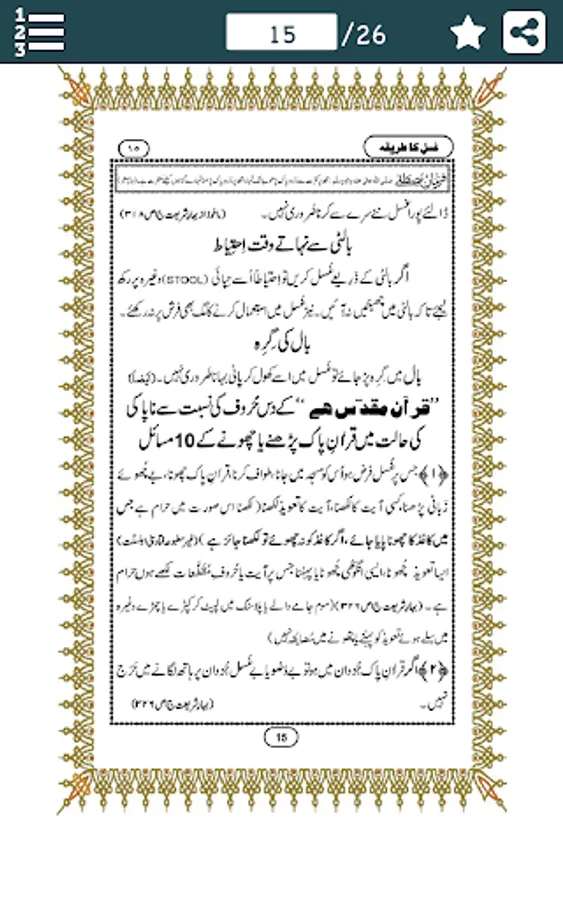 1
2
3
15 /26
غسل کا طریقہ
۱۵
فرمانِ مصطفٰے
ڈالئے پورا غسل نئے سرے سے کرنا ضروری نہیں۔ (ماخوذ از بہارِ شریعت ج۱ ص۳۱۸)
بالٹی سے نہاتے وقت اِحتِیاط
اگر بالٹی کے ذَرِیعے غسل کریں تو اِحتیاطاً اُسے تپائی (STOOL) وغیرہ پر رکھ
لیجئے تا کہ بالٹی میں چھینٹیں نہ آئیں۔ نیز غسل میں استِعمال کرنے کا مگ بھی فرش پر نہ رکھئے۔
بال کی گِرِہ
بال میں گِرِہ پڑ جائے تو غسل میں اسے کھول کر پانی بہانا ضَروری نہیں۔ (اَیضاً)
”قرآن مقدّس ھے“ کے دس حُروف کی نسبت سے ناپاکی
کی حالت میں قرآنِ پاک پڑھنے یا چھونے کے 10 مسائل
﴿۱﴾ جس پر غسل فرض ہو اُس کو مسجد میں جانا، طواف کرنا، قرآنِ پاک چھونا، بے چُھوئے
زَبانی پڑھنا، کسی آیت کا لکھنا، آیت کا تعویذ لکھنا (لکھنا اس صورت میں حرام ہے جس
میں کاغذ کا چھونا پایا جائے، اگر کاغذ کو نہ چھوئے تو لکھنا جائز ہے) (غیر مطبوعہ فتاویٰ اہلسنّت)
ایسا تعویذ چُھونا، ایسی انگوٹھی چُھونا یا پہننا جس پر آیت یا حُروفِ مُقَطَّعات لکھے ہوں حرام
ہے۔ (بہارِ شریعت ج۱ ص۳۲۶) (موم جامے والے یا پلاسٹک میں لپیٹ کر کپڑے یا چمڑے وغیرہ
میں سلے ہوئے تعویذ کو پہننے یا چھونے میں مُضایَقہ نہیں)
﴿۲﴾ اگر قرآنِ پاک جُزدان میں ہو تو بے وُضو یا بے غسل جُزدان پر ہاتھ لگانے میں حَرَج
نہیں۔ (بہارِ شریعت ج۱ ص۳۲۶)
15